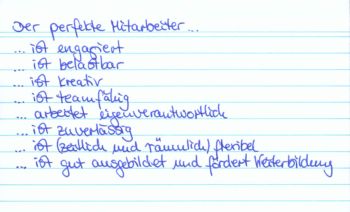 Der perfekte Mitarbeiter...
... ist engagiert
... ist belastbar
... ist kreativ
... ist teamfähig
... arbeitet eigenverantwortlich
... ist zuverlässig
... ist (zeitlich und räumlich) flexibel
... ist gut ausgebildet und fördert Weiterbildung